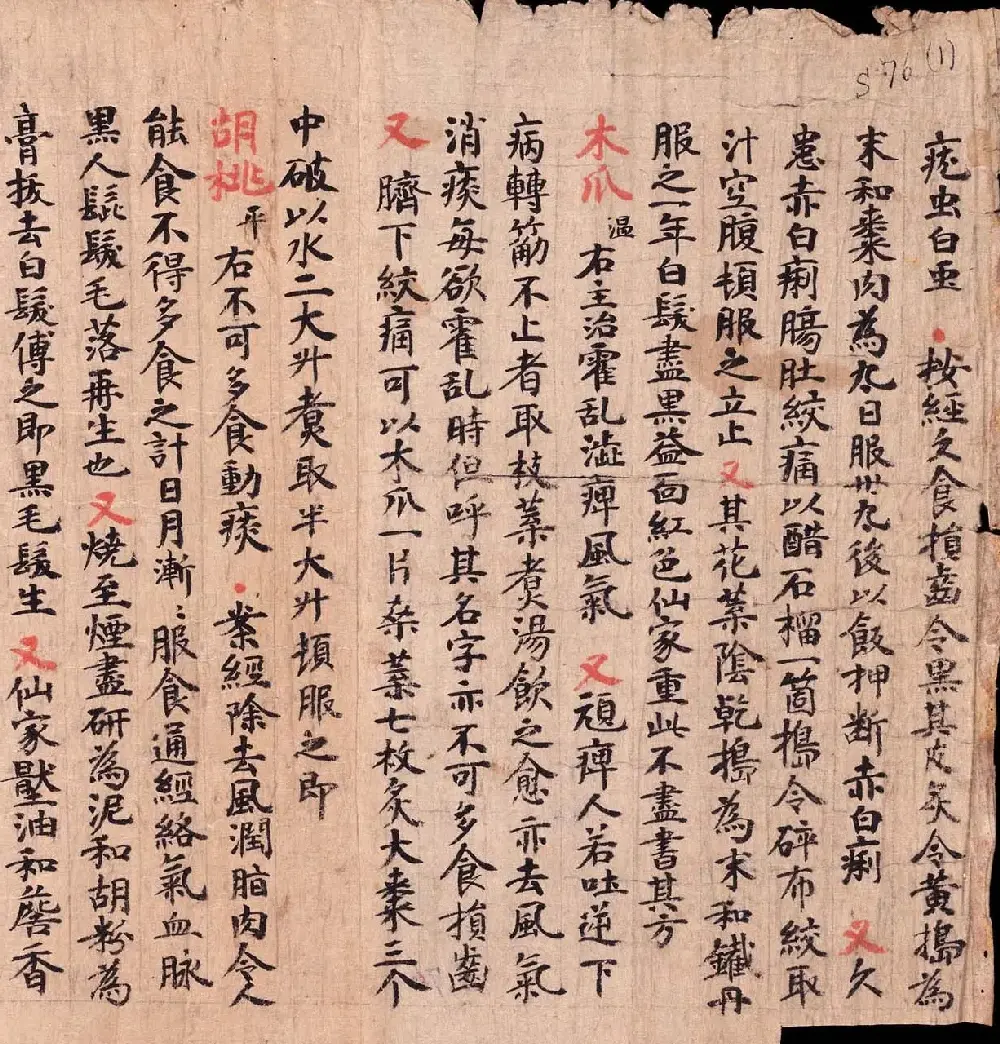 S 76 (1)
疣虫白虫 ・ 按經久食損齒令黑其皮炙令黃搗為
末和棗肉為丸日服卅丸後以飯押断赤白痢 又久
患赤白痢腸肚絞痛以醋石榴一箇搗令碎布絞取
汁空腹頓服之立止 又其花葉陰乾搗為末和鐵丹
服之一年白髮盡黑益面紅色仙家重此不盡書其方
木瓜 温 右主治霍乱澁痺風氣 又頑痺人若吐逆下
病轉筋不止者取枝葉煮湯飲之愈亦去風氣
消痰每欲霍乱時但呼其名字亦不可多食損齒
又 臍下絞痛可以木瓜一片桒葉七枚炙大棗三个
中破以水二大升煮取半大升頓服之即
胡桃 平 右不可多食動痰 ・ 案經除去風潤脂肉令人
能食不得多食之計日月漸〻服食通經絡氣血脉
黑人髭髮毛落再生也 又燒至煙盡研為泥和胡粉為
膏拔去白髮傅之即黑毛髮生 又仙家壓油和詹香